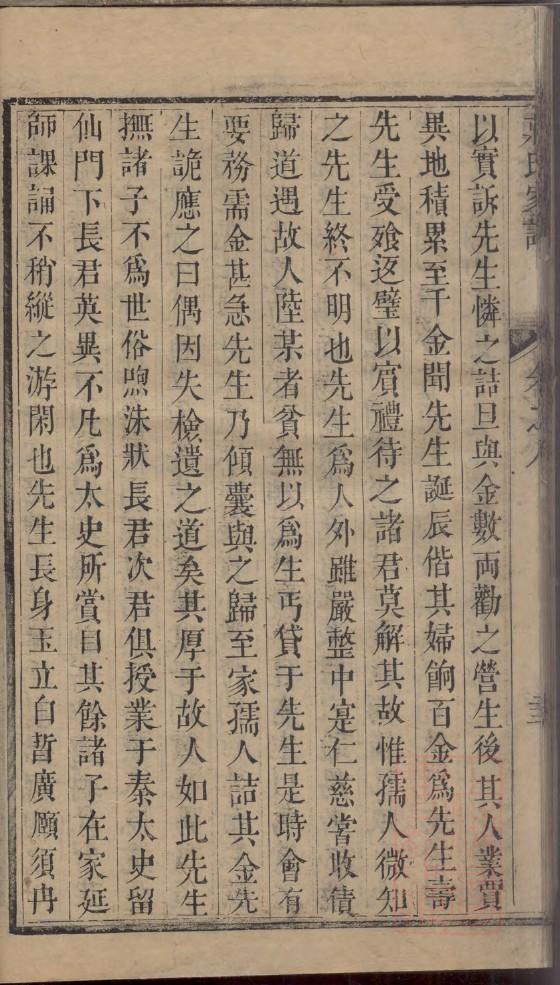 以實訴先生憐之詰旦與金數両勸之營生後其人業賈
異地積累至千金聞先生誕辰偕其婦餉百金爲先生壽
先生受飱返璧以賓禮待之諸君莫解其故惟孺人微知
之先生終不明也先生爲人外雖嚴整中寔仁慈嘗收債
歸道遇故人陸某者貧無以爲生丐貸于先生是時會有
要務需金甚急先生乃傾囊與之歸至家孺人詰其金先
生詭應之曰偶因失檢遺之道矣其厚于故人如此先生
撫諸子不爲世俗煦沫狀長君次君俱授業于秦太史留
仙門下長君英異不凡爲太史所賞目其餘諸子在家延
師課誦不稍縱之游閑也先生長身玉立白晳廣願須冉